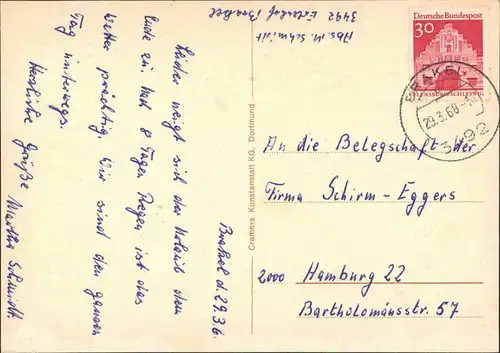 Brakel d. 29.3.6.
Leider neigt sich der Urlaub dem
Ende zu. Nach 8 Tagen Regen ist das
Wetter prächtig. Wir sind den ganzen
Tag unterwegs.
Herzliche Grüße Martha Schmidt.
Abs. M. Schmidt
3492 Brakel
Cramers Kunstanstalt KG, Dortmund
Deutsche Bundespost
30
FLENSBURG/SCHLESWIG
BRAKEL
29.3.68-1
3492
An die Belegschaft der
Firma Schirm-Eggers
2000 Hamburg 22
Bartholomäusstr. 57